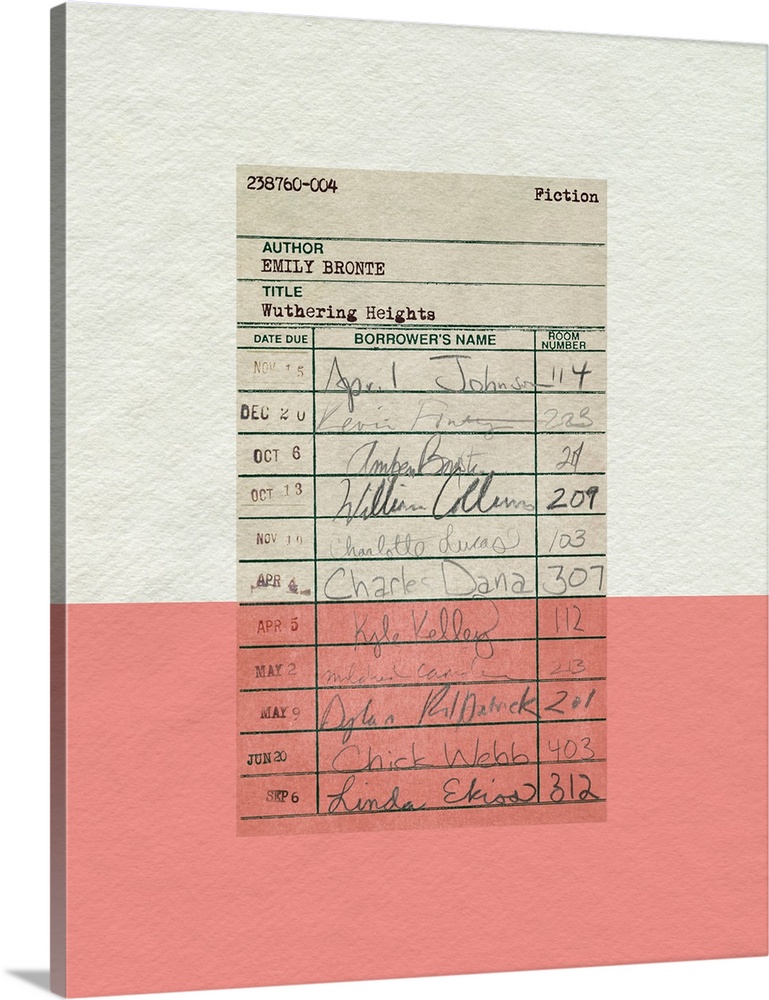 238760-004 Fiction
AUTHOR
EMILY BRONTE
TITLE
Wuthering Heights
DATE DUE BORROWER'S NAME ROOM NUMBER
NOV 15 April Johnson 114
DEC 20 Kevin 223
OCT 6 Amber
OCT 13 William Collins 209
NOV 10 Charlotte Lucas 103
APR 4 Charles Dana 307
APR 5 Kyle Kelley 112
MAY 2 Mildred 213
MAY 9 Dylan Kilpatrick 201
JUN 20 Chick Webb 403
SEP 6 Linda Ekiss 312